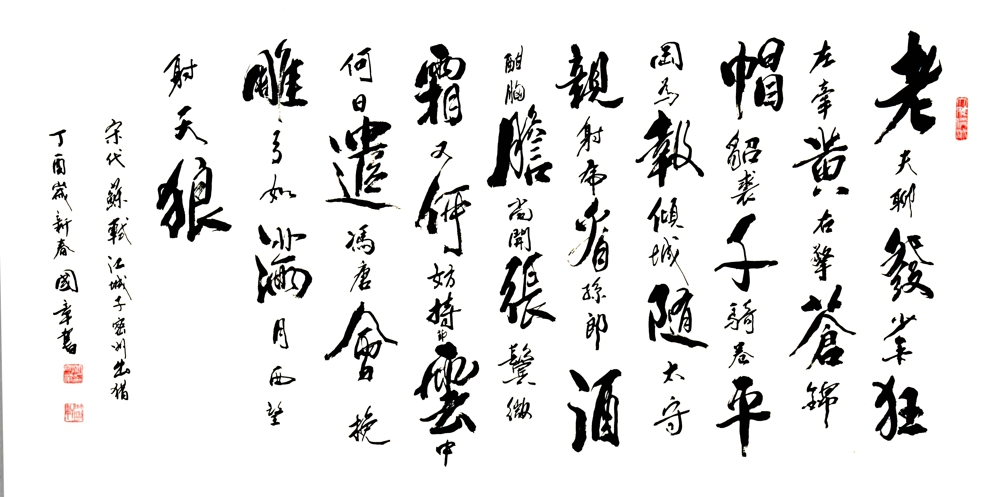 老夫聊發少年狂
左牽黄右擎蒼錦
帽貂裘千騎卷平
岡为報傾城随太守
親射虎看孫郎酒
酣胸膽尚開張鬢微
霜又何妨持節雲中
何日遣馮唐會挽
雕弓如滿月西望
射天狼
宋代蘇軾江城子密州出猎
丁酉歲新春國章書